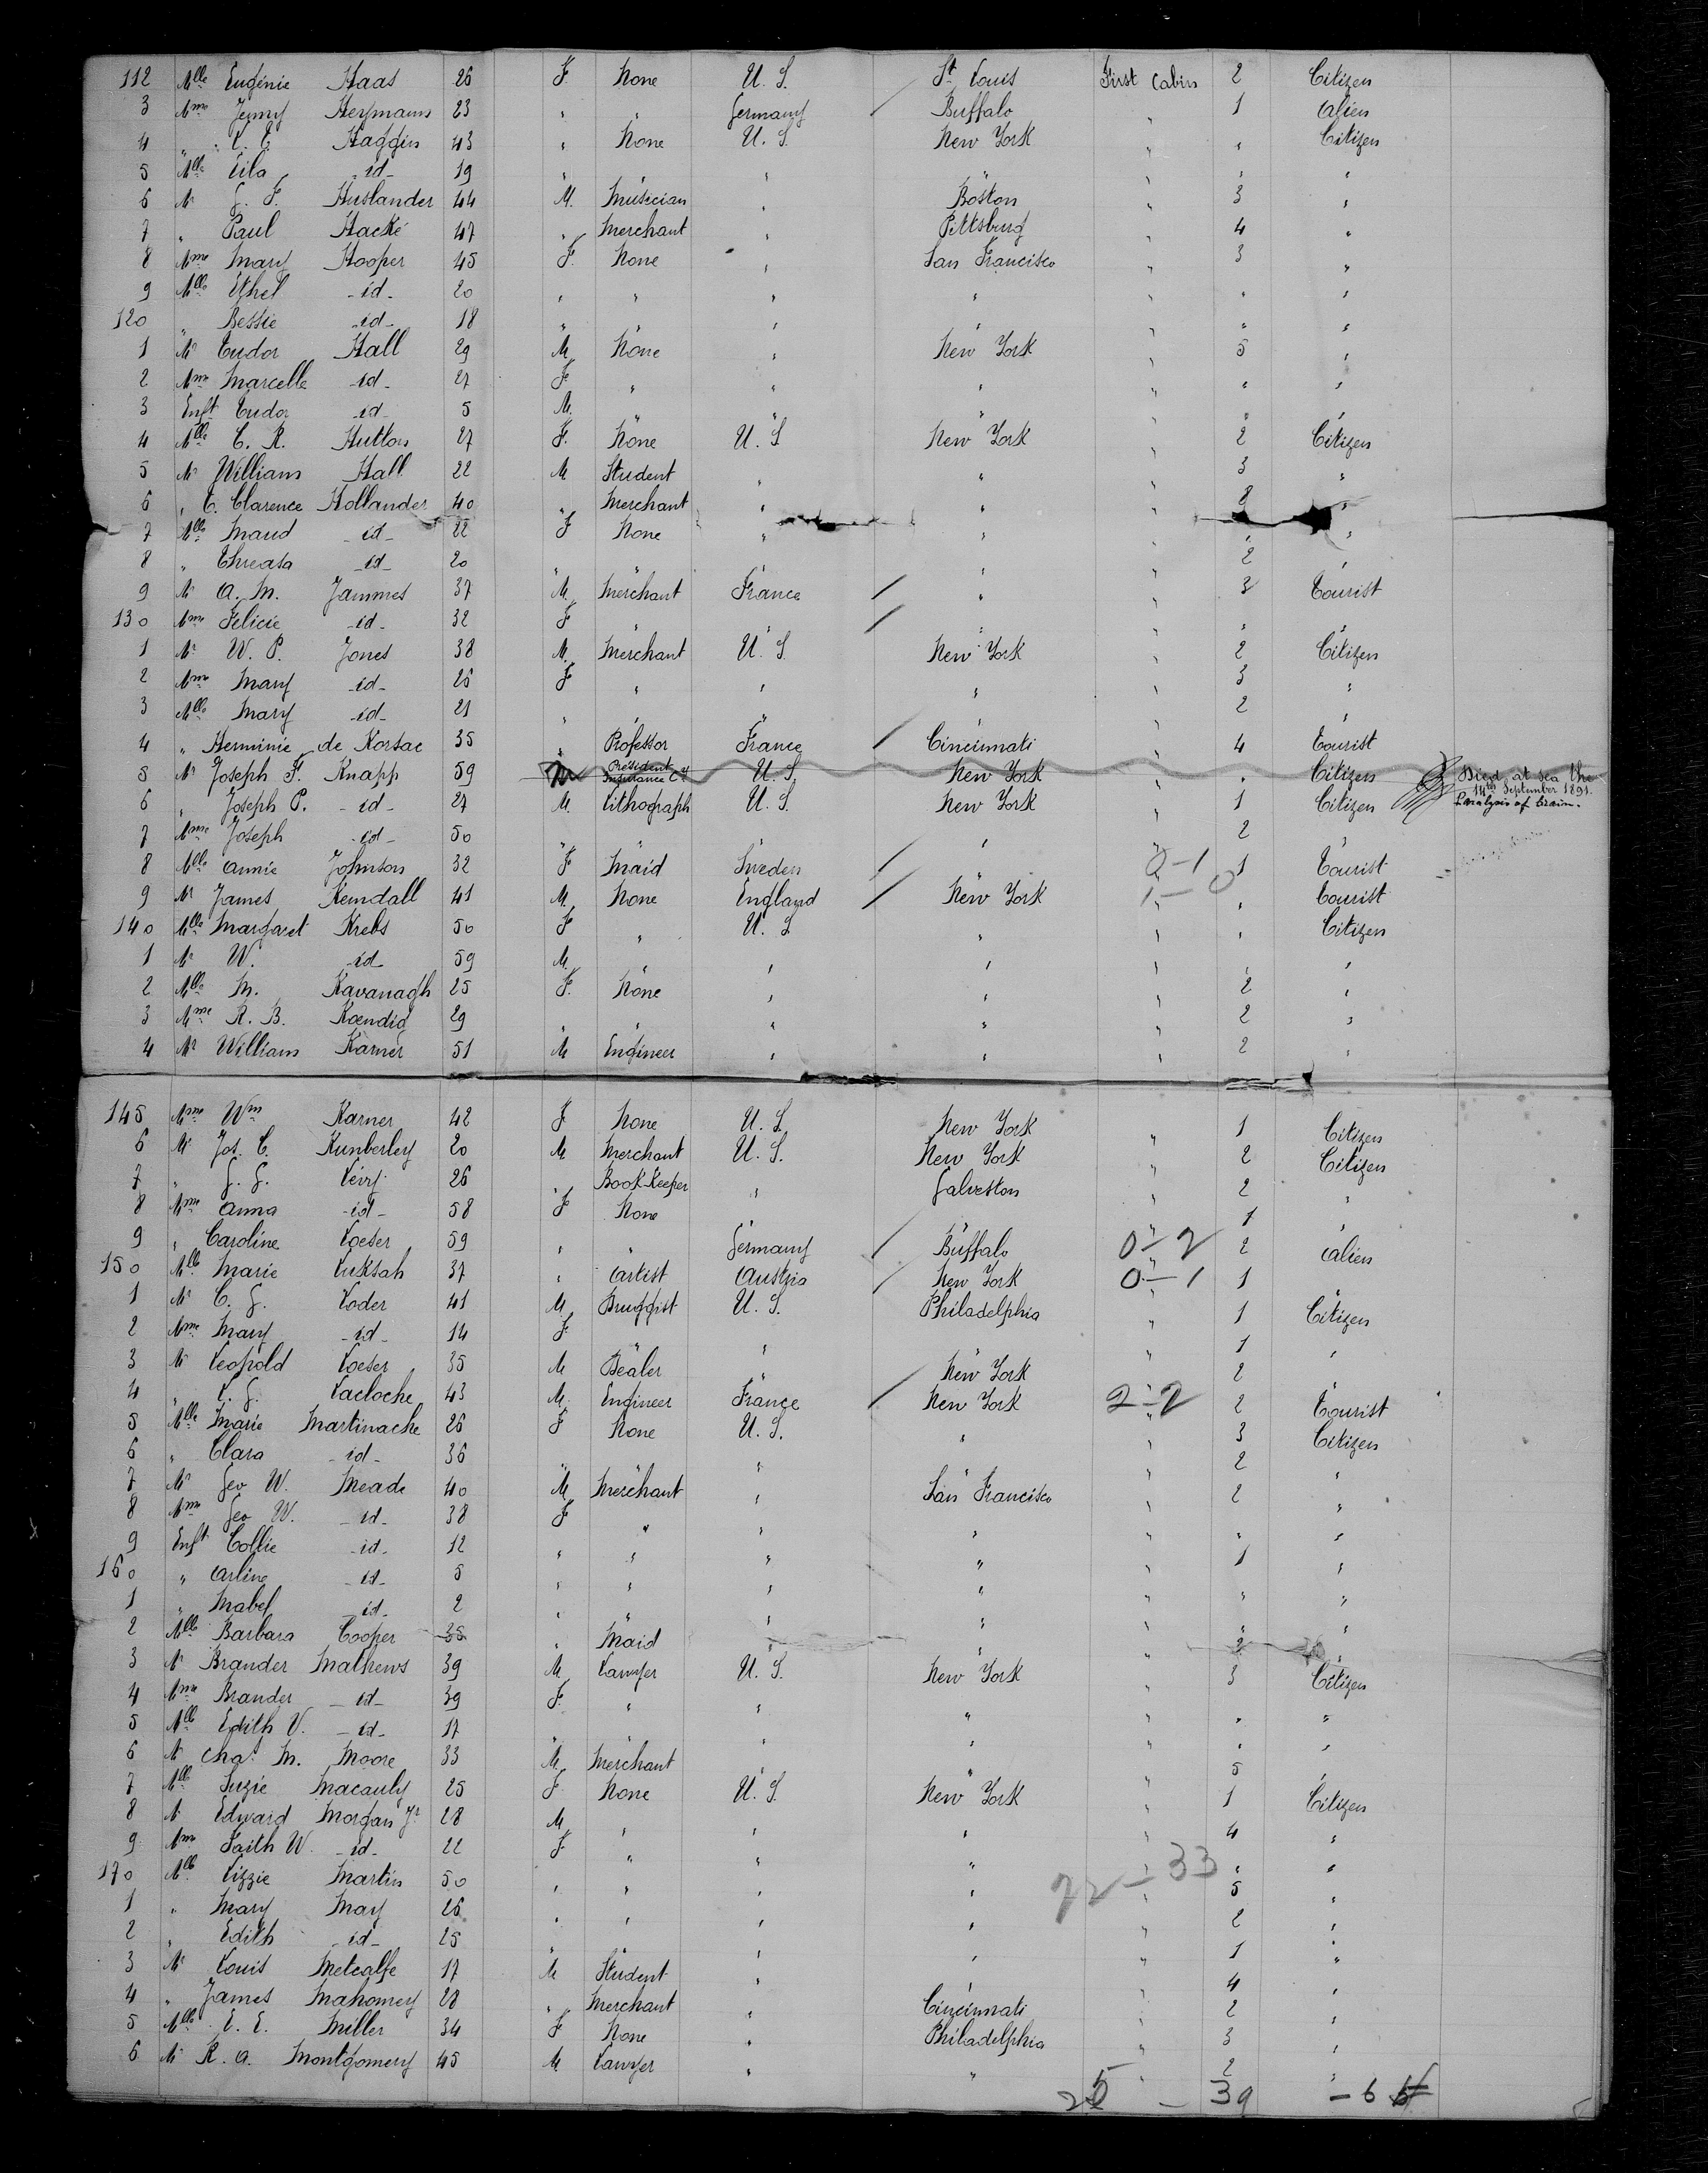 112 Mlle Eugénie Haas 26 F. None U.S. St Louis First Cabin 2 Citizen
3 Mme Jenny Heymann 23 " " Germany / Buffalo " 1 Alien
4 " Haggin 43 " None U.S. New York " " Citizen
5 Mlle Lila -id- 19 " " " " " " "
6 Mr G. F. Huslander 44 M. Musician " Boston " 3 "
7 " Paul Hacké 47 " Merchant " Pittsburg " 4 "
8 Mme Mary Hooper 45 F. None " San Francisco " 3 "
9 Mlle Ethel -id- 20 " " " " " " "
120 " Bessie -id- 18 " " " " " " "
1 Mr Tudor Hall 29 M. None " New York " 5 "
2 Mme Marcelle -id- 27 F " " " " " "
3 Enft Tudor -id- 5 M. " " " " " "
4 Mlle C. R. Hutton 27 F. None U.S New York " 2 Citizen
5 Mr William Hall 22 M Student " " " 3 "
6 " T. Clarence Hollander 40 " Merchant " " " "
7 Mlle Maud -id- 22 F None " " " " "
8 " Threasa -id- 20 " " " " " 2 "
9 Mr A. M. Jammes 37 M. Merchant France / " " 3 Tourist
130 Mme Félicie -id- 32 F " " / " " " "
1 Mr W. P. Jones 38 M. Merchant U.S. New York " 2 Citizen
2 Mme Mary -id- 26 F " " " " 3 "
3 Mlle Mary -id- 21 " " " " " 2 "
4 " Herminie de Korsac 35 " Professor France / Cincinnati " 4 Tourist
5 Mr Joseph F. Knapp 59 M President Insurance Cy U.S. New York " " Citizen Died at sea the 14th September 1891. Paralysis of brain.
6 " Joseph P. -id- 27 M. Lithograph U.S. New York " 1 Citizen
7 Mme Joseph -id- 50 " " " " " 2 "
8 Mlle Annie Johnson 32 F Maid Sweden / " 0-1 1 Tourist
9 Mr James Kendall 41 M. None England / New York 1-0 " Tourist
140 Mlle Margaret Krebs 50 F " U.S " " " Citizen
1 Mr W. -id- 59 M. " " " " " "
2 Mlle M. Kavanagh 25 F. None " " " 2 "
3 Mme R. B. Kœndig 29 " " " " " 2 "
4 Mr William Karner 51 M Engineer " " " 2 "
145 Mme Wm Karner 42 F. None U.S. New York " 1 Citizen
6 Mr Jos. C. Kunberley 20 M. Merchant U.S. New York " 2 Citizen
7 " G. G. Levy 26 " Book-Keeper " Galveston " 2 "
8 Mme Anna -id- 58 F None " " " 1 "
9 " Caroline Loeser 59 " " Germany / Buffalo 0-2 2 Alien
150 Mlle Marie Luksah 37 " Artist Austria / New York 0-1 1 "
1 Mr C. G. Loder 41 M. Druggist U.S. Philadelphia " 1 Citizen
2 Mme Mary -id- 14 F. " " " " 1 "
3 Mr Leopold Loeser 35 M Dealer " New York " 2 "
4 " L. G. Lacloche 43 M. Engineer France / New York 2-2 2 Tourist
5 Mlle Marie Martinache 26 F None U.S. " " 3 Citizen
6 " Clara -id- 36 " " " " " 2 "
7 Mr Geo W. Meade 40 M. Merchant " San Francisco " 2 "
8 Mme Geo W. -id- 38 F " " " " " "
9 Enft Collie -id- 12 " " " " " 1 "
160 " Arline -id- 5 " " " " " " "
1 " Mabel -id- 2 " " " " " " "
2 Mlle Barbara Cooper 35 " Maid " " " 2 "
3 Mr Brander Mathews 39 M. Lawyer U.S. New York " 3 Citizen
4 Mme Brander -id- 39 F. " " " " " "
5 Mlle Edith V. -id- 17 " " " " " " "
6 Mr Chas M. Moore 33 M. Merchant " " " 5 "
7 Mlle Suzie Macauly 25 F None U.S. New York " 1 Citizen
8 Mr Edward Morgan Jr 28 M. " " " " 4 "
9 Mme Faith W. -id- 22 F. " " " " " "
170 Mlle Lizzie Martin 50 " " " " 22-33 5 "
1 " Mary May 26 " " " " " 2 "
2 " Edith -id- 25 " " " " " 1 "
3 Mr Louis Metcalfe 17 M Student " " " 4 "
4 " James Mahomey 28 " Merchant " Cincinnati " 2 "
5 Mlle E. E. Miller 34 F None " Philadelphia " 3 "
6 Mr R. A. Montgomery 45 M Lawyer " " " 2 "
25 - 39 - 6